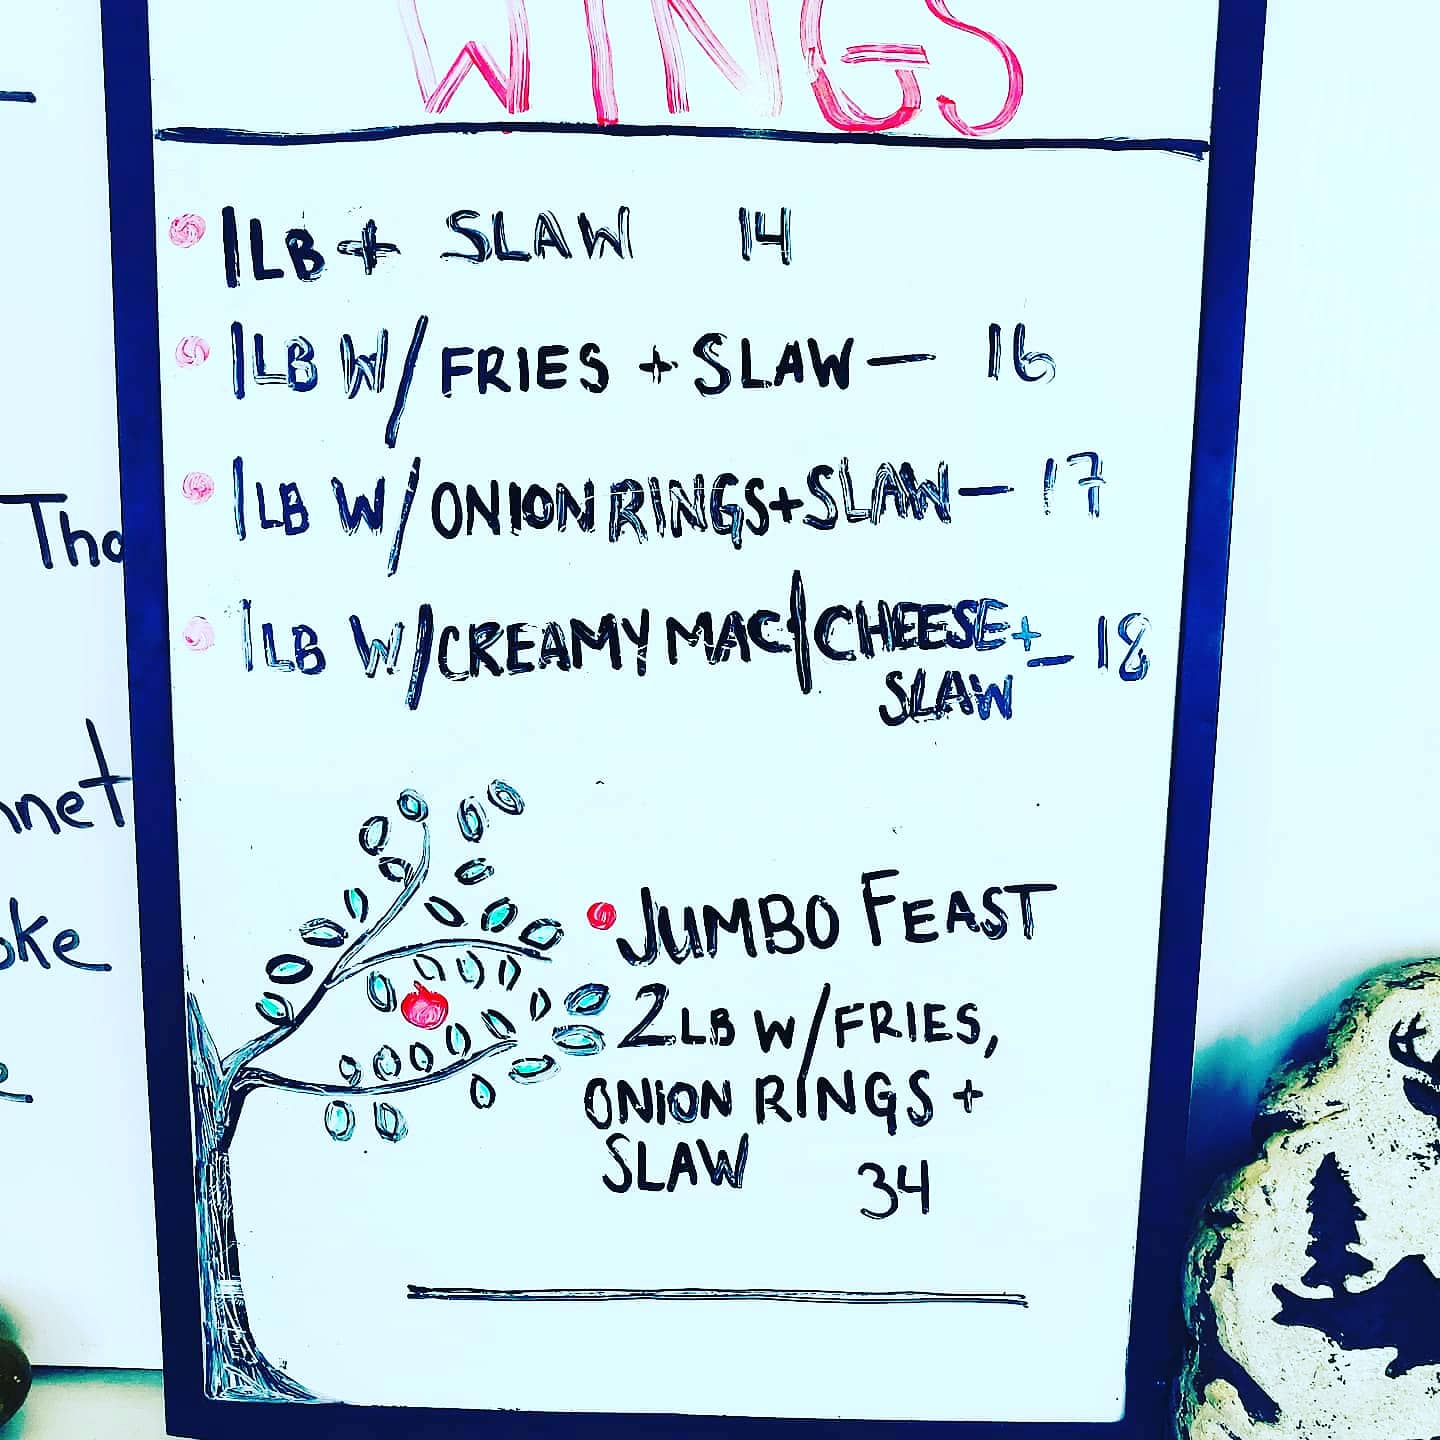 WINGS
1LB + SLAW 14
1LB W/ FRIES + SLAW — 16
1LB W/ ONION RINGS + SLAW — 17
1LB W/ CREAMY MAC/CHEESE + — 18
SLAW
JUMBO FEAST
2LB W/FRIES,
ONION RINGS +
SLAW 34